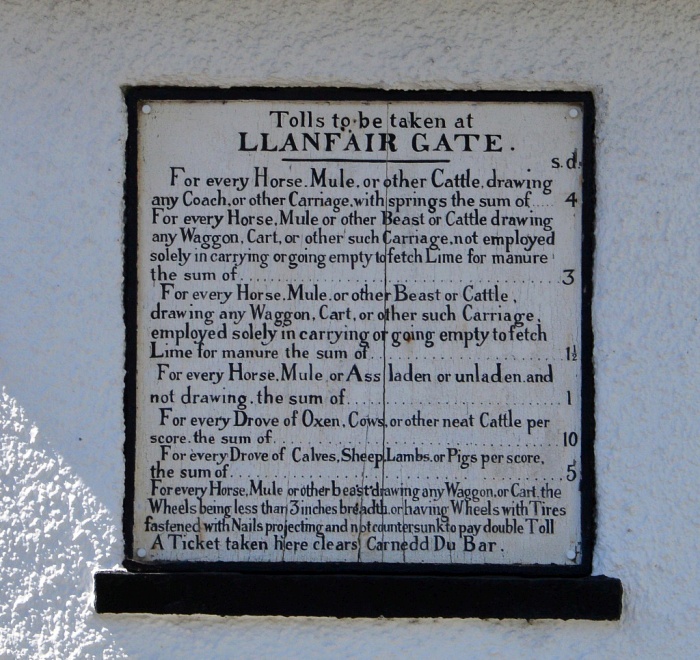 Tolls to be taken at
LLANFAIR GATE.
s. d.
For every Horse, Mule, or other Cattle, drawing
any Coach, or other Carriage, with springs the sum of..... 4
For every Horse, Mule or other Beast or Cattle drawing
any Waggon, Cart, or other such Carriage, not employed
solely in carrying or going empty to fetch Lime for manure
the sum of.......................................................... 3
For every Horse, Mule, or other Beast or Cattle,
drawing any Waggon, Cart, or other such Carriage,
employed solely in carrying or going empty to fetch
Lime for manure the sum of................................ 1½
For every Horse, Mule, or Ass laden or unladen, and
not drawing, the sum of.................................... 1
For every Drove of Oxen, Cows, or other neat Cattle per
score, the sum of................................................ 10
For every Drove of Calves, Sheep, Lambs, or Pigs per score,
the sum of........................................................ 5
For every Horse, Mule or other beast drawing any Waggon, or Cart, the
Wheels being less than 3 inches breadth, or having Wheels with Tires
fastened with Nails projecting and not countersunk to pay double Toll
A Ticket taken here clears Carnedd Du Bar.